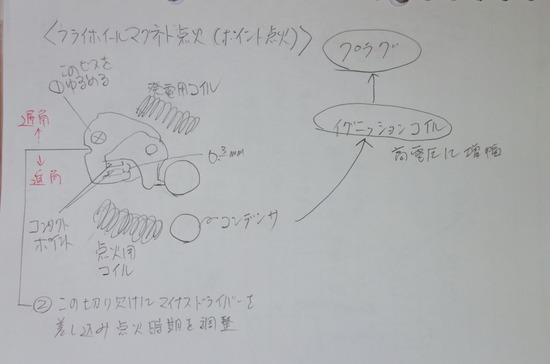 〈フライホイールマグネト点火(ポイント点火)〉
プラグ
①このビスを
ゆるめる
発電用コイル
イグニッションコイル
高電圧に増幅
遅角
進角
0.3mm
コンタクト
ポイント
点火用
コイル
コンデンサ
②この切り欠けにマイナスドライバーを
差し込み点火時期を調整